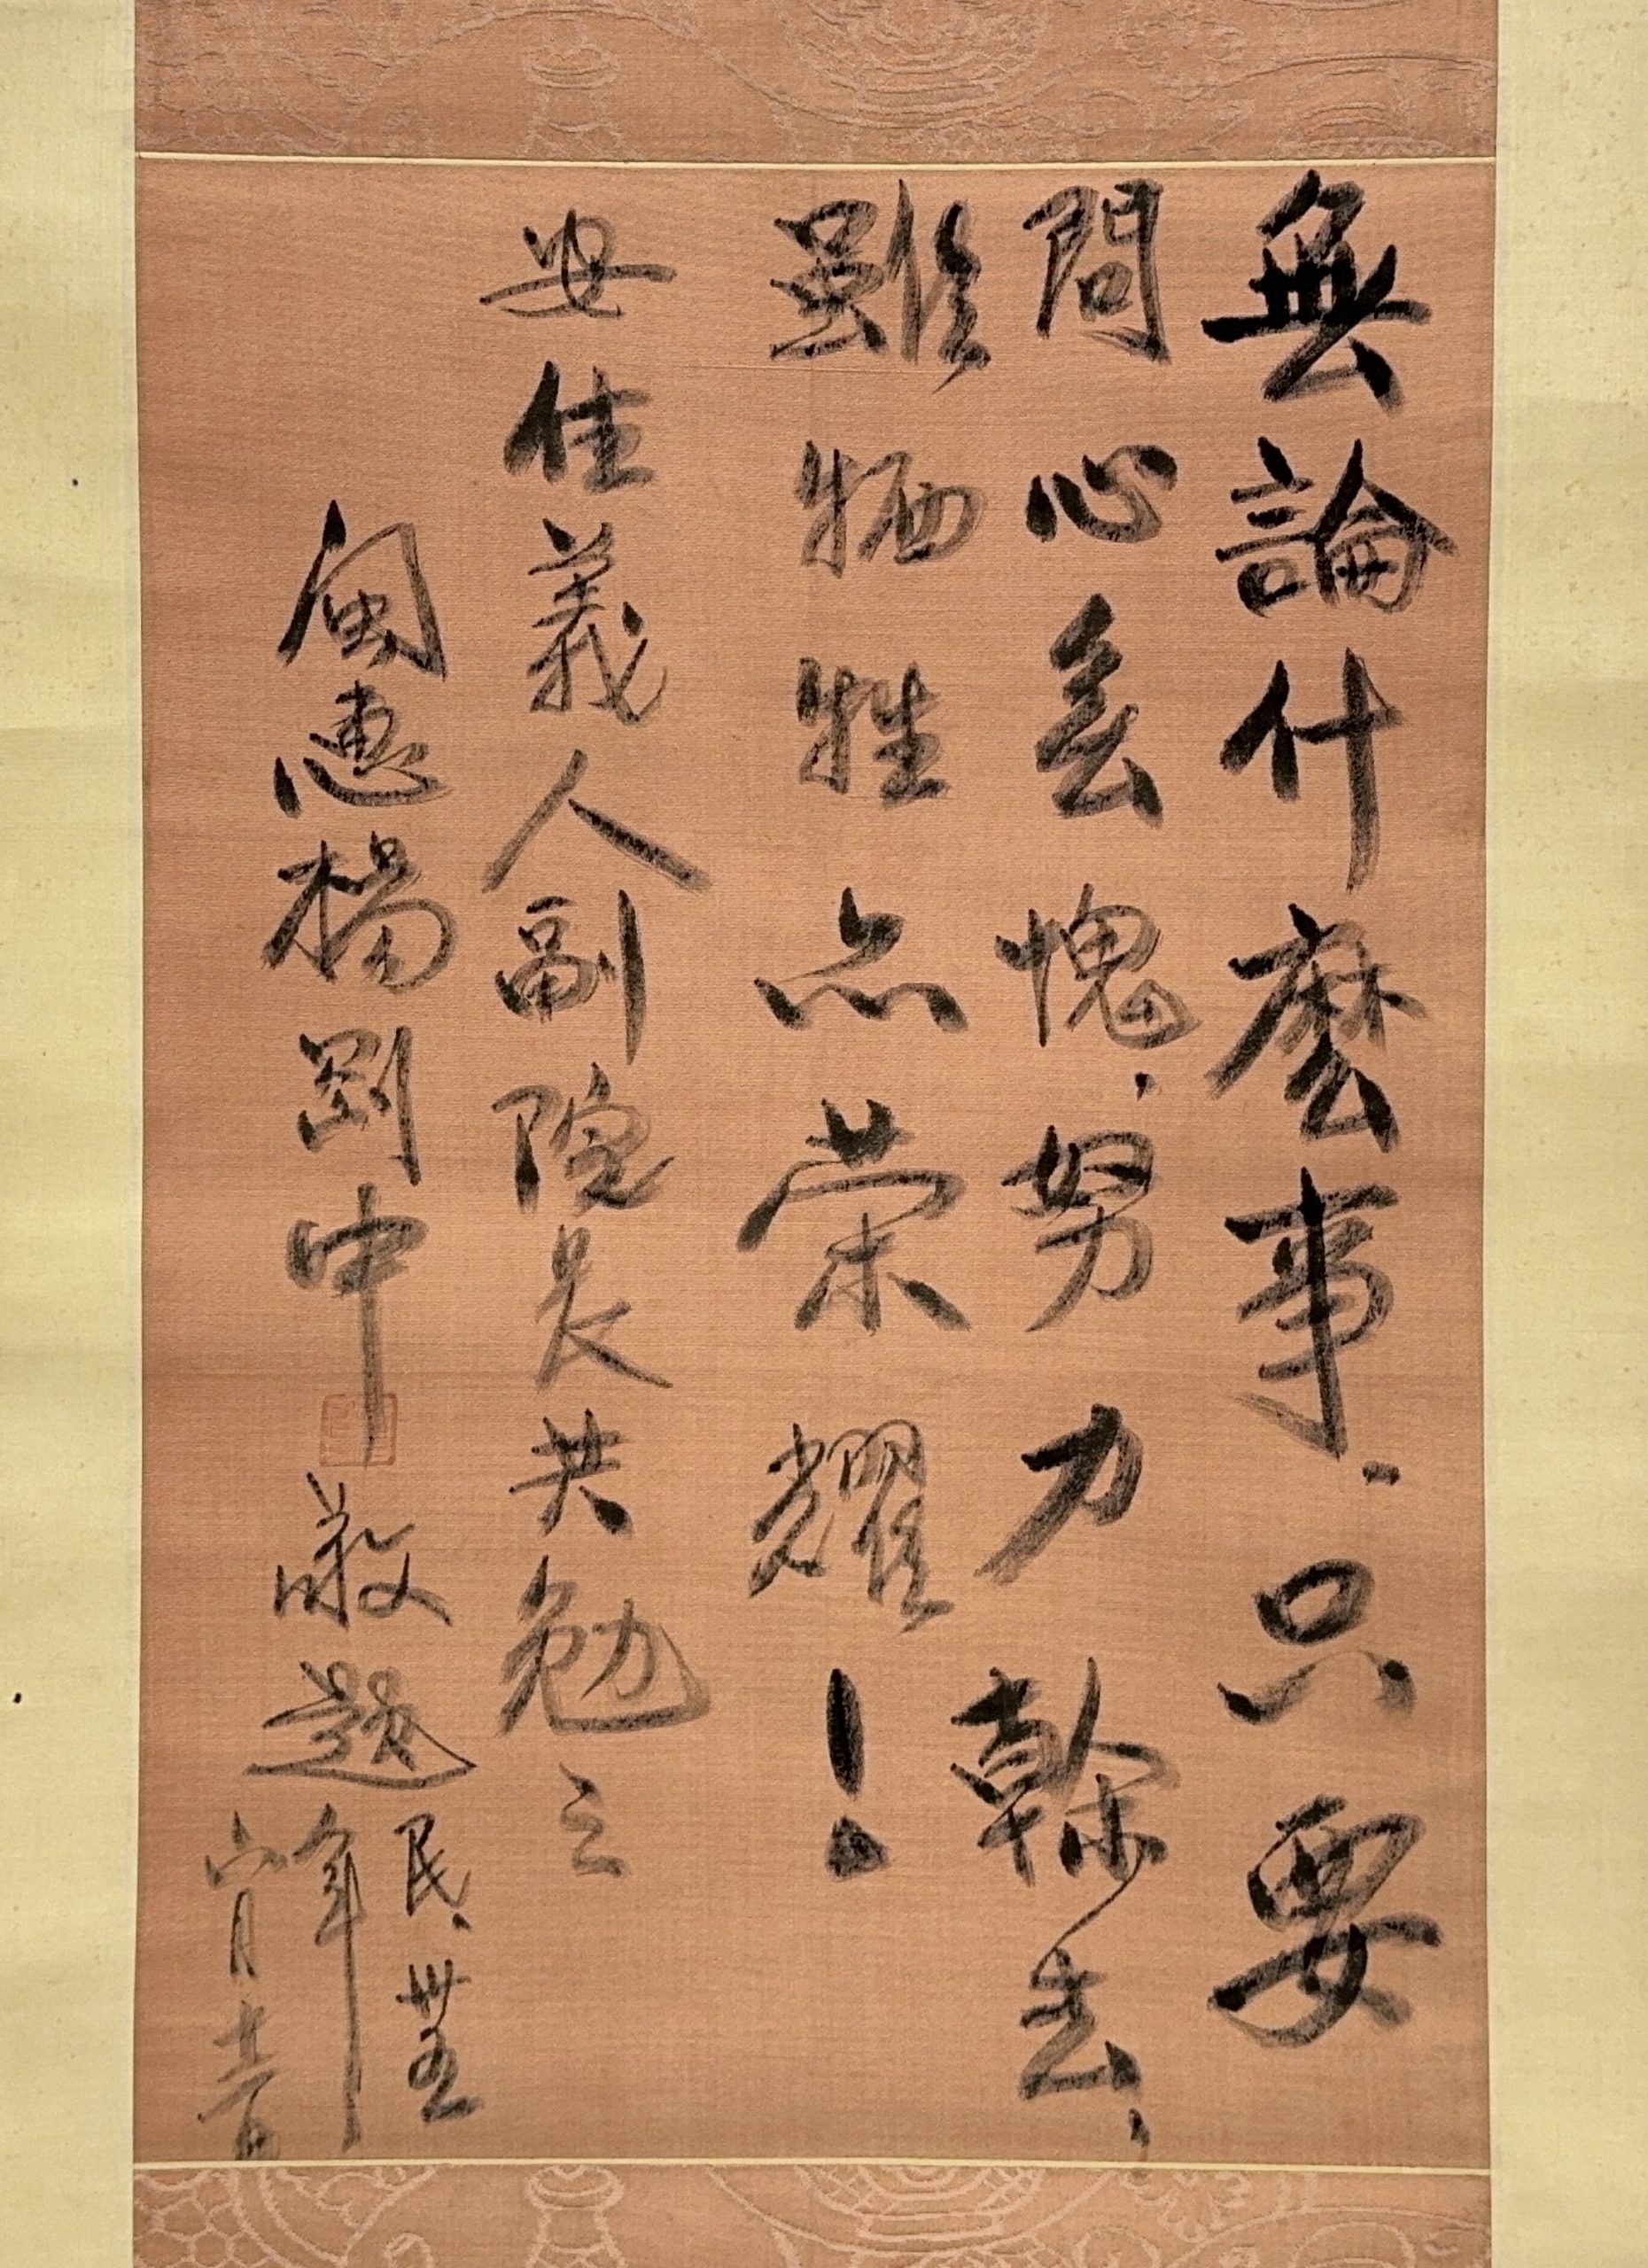 無論什麽事．只要
問心無愧．努力幹去，
雖犧牲亦榮耀！
安住義人副院長共勉之
閩惠楊劉中敬題
民．卅五
年
六月十六日